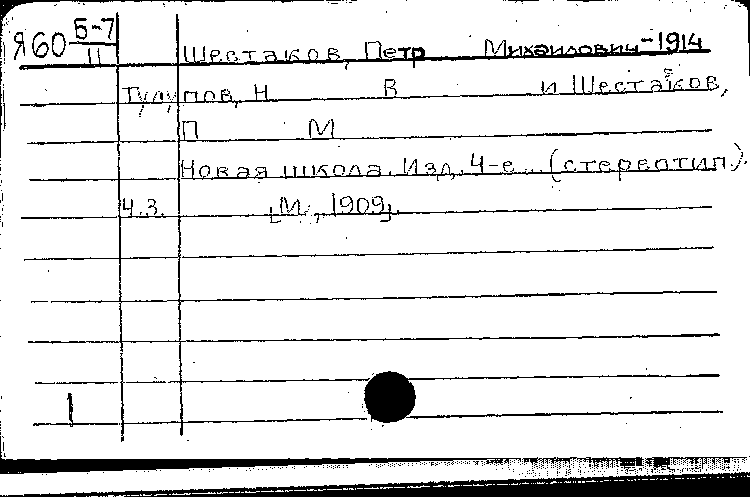 Я60 Б-7/11
Шестаков, Петр Михайлович -1914
Тулупов, Н В и Шестаков,
П М
Новая школа. Изд. 4-е... (стереотип.).
Ч.3. [М., 1909].
1